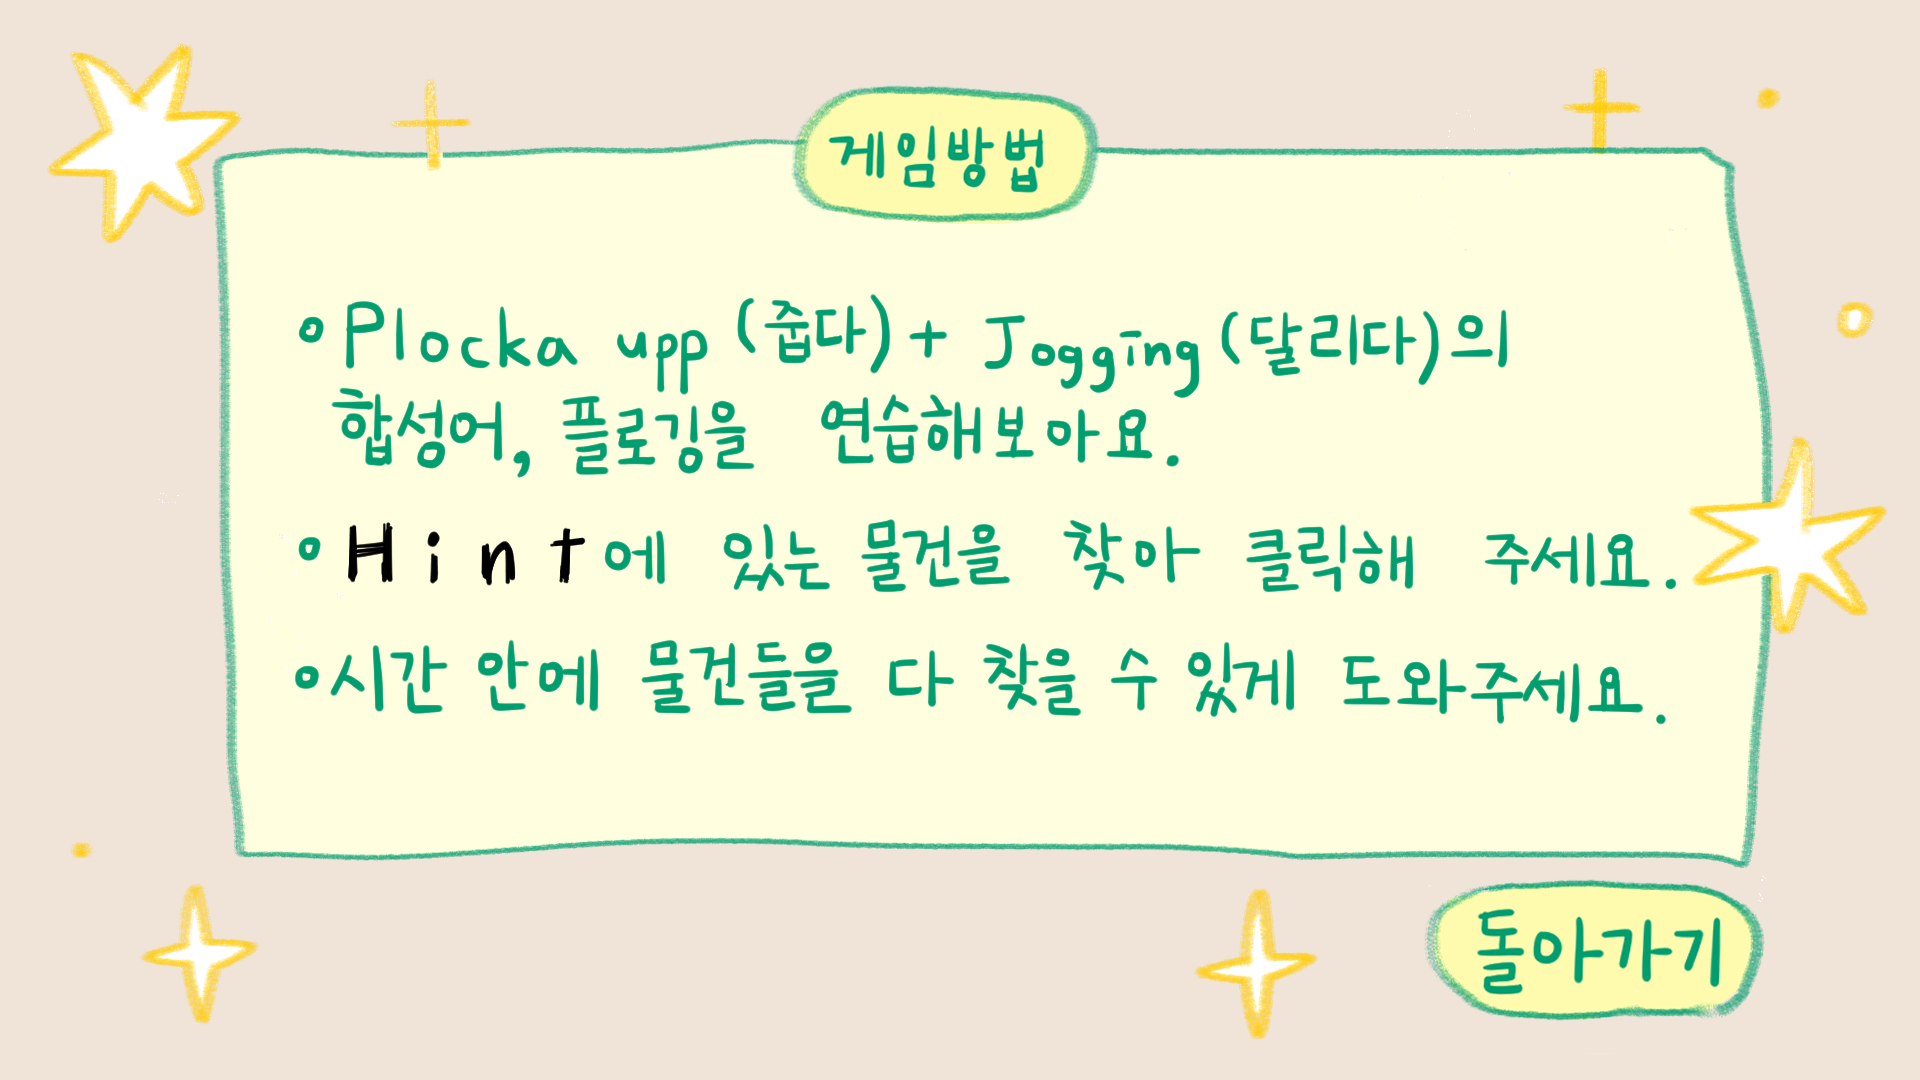 게임방법
• Plocka upp (줍다) + Jogging (달리다)의
합성어, 플로깅을 연습해보아요.
• Hint에 있는 물건을 찾아 클릭해 주세요.
• 시간 안에 물건들을 다 찾을 수 있게 도와주세요.
돌아가기